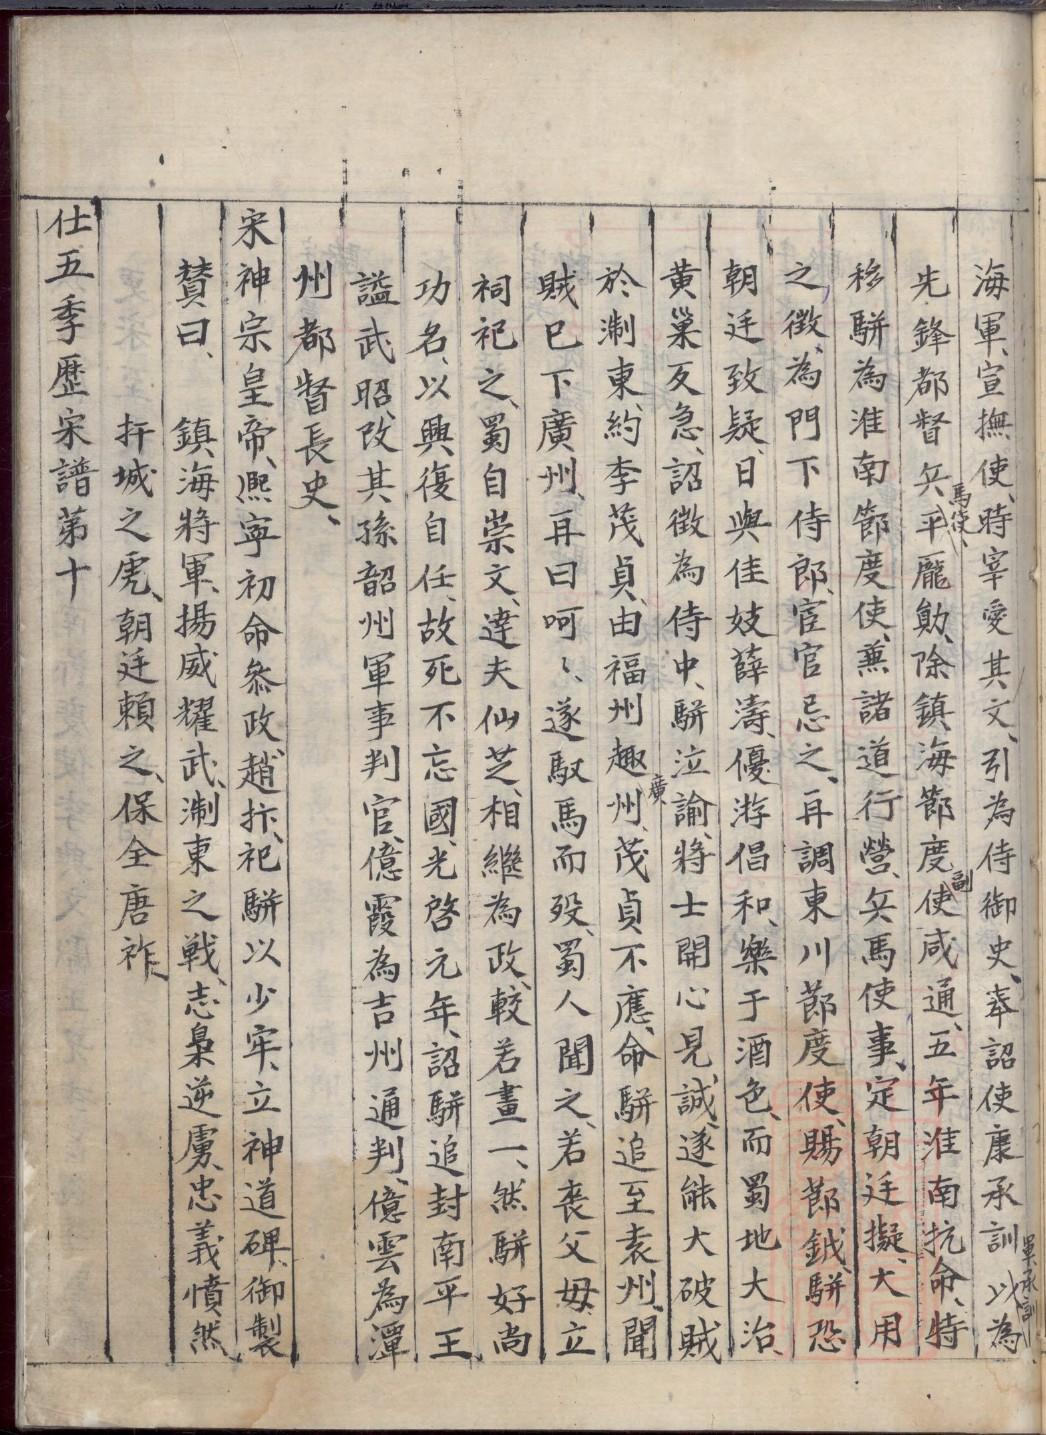 海軍、宣撫使、時宰愛其文、引為侍御史、奉詔使康承訓以為
軍承訓
先鋒都督兵平龐勛、除鎮海節度使咸通、五年淮南抗命、特
馬使、
副
移駢為淮南節度使、兼諸道行營、兵馬使事、定朝廷擬、大用
之徵、為門下侍郎、宦官忌之、再調東川節度使、賜節鉞、駢恐
朝廷致疑、日與佳妓薛濤、優游倡和、樂于酒色、而蜀地大治、
黃巢反急、詔徵為侍中、駢泣諭、將士開心見誠、遂能大破賊
於淛東、約李茂貞、由福州趣州、茂貞不應、命駢追至袁州、聞
廣
賊已下廣州、再曰呵〻、遂馭馬而歿、蜀人聞之、若喪父母、立
祠祀之、蜀自崇文、達夫仙芝、相繼為政、較若畫一、然駢好尚
功名、以興復自任、故死不忘國、光啓元年、詔駢追封南平王
謚武昭、改其孫韶州軍事判官、億霞為吉州通判、億雲為潭
州都督長史、
宋神宗皇帝、熈寧初命叅政、趙抃、祀駢以少牢、立神道碑、御製
賛曰、 鎮海將軍、揚威耀武、淛東之戰、志梟逆虜、忠義憤然
扞城之虎、朝廷賴之、保全唐祚、
仕五季歷宋譜第十